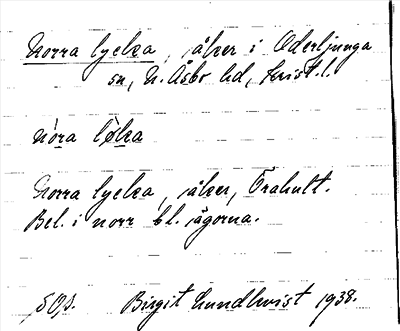 Norra lycka, åker i Oderljunga
sn, N. Åsbo hd, Krist. l.
nòra lø̀ka
Norra lycka, åker, Trahult.
Bel. i norr bl. ägorna.
Birgit Lundkvist 1938.